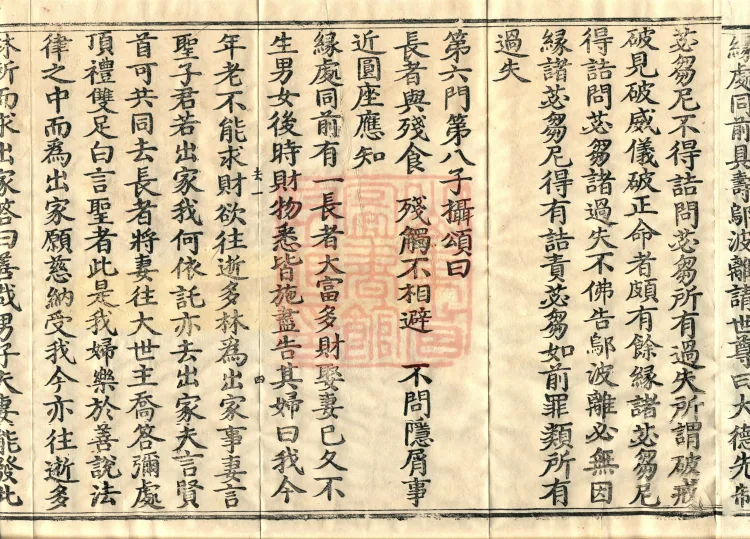 緣處同前具壽鄔波離請世尊曰大德先制
苾芻尼不得詰問苾芻所有過失所謂破戒
破見破威儀破正命者頗有餘緣諸苾芻尼
得詰問苾芻諸過失不佛告鄔波離必無因
緣諸苾芻尼得有詰責苾芻如前罪類所有
過失
第六門第八子攝頌曰
長者與殘食 殘觸不相避 不問隱屑事
近圓座應知
緣處同前有一長者大富多財娶妻已久不
生男女後時財物悉皆施盡告其婦曰我今
夫一 四
年老不能求財欲往逝多林為出家事妻言
聖子君若出家我何依託亦去出家夫言賢
首可共同去長者將妻往大世主喬答彌處
頂禮雙足白言聖者此是我婦樂於善說法
律之中而為出家願慈納受我今亦往逝多
林所而求出家答曰善哉男子夫妻能發此